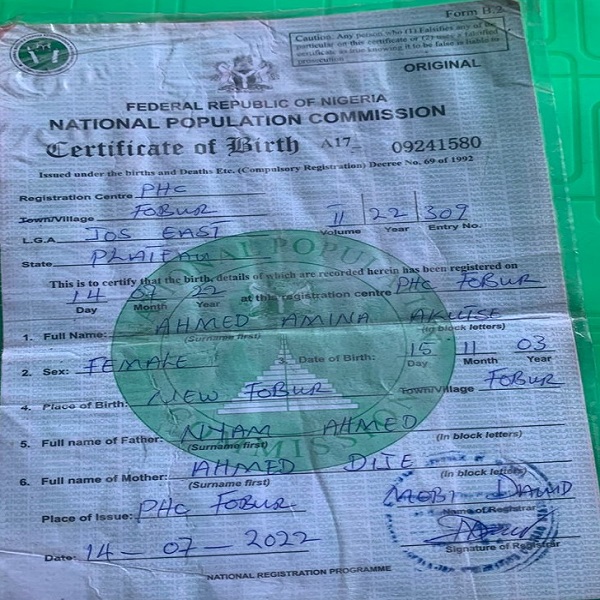 Form B.2
Caution: Any person who (1) Falsifies any of the
particular on this certificate or (2) uses a falsified
certificate as true knowing it to be false is liable to
prosecution
ORIGINAL
FEDERAL REPUBLIC OF NIGERIA
NATIONAL POPULATION COMMISSION
Certificate of Birth A17_ 09241580
Issued under the births and Deaths Etc. (Compulsory Registration) Decree No. 69 of 1992
Registration Centre PHC
Town/Village FOBUR
II 22 309
L.G.A. JOS EAST Volume Year Entry No.
State PLATEAU
This is to certify that the birth, details of which are recorded herein has been registered on
14 07 22 at this registration centre PHC FOBUR
Day Month Year
1. Full Name: AHMED AMINA
(Surname first) (In block letters)
2. Sex: FEMALE 3. Date of Birth: 15 11 03
Day Month Year
4. Place of Birth: NEW FOBUR Town/Village FOBUR
5. Full name of Father: NYAM AHMED
(Surname first) (In block letters)
6. Full name of Mother: AHMED DITE
(Surname first) (In block letters)
Place of Issue: PHC FOBUR
MOBI DAVID
Name of Registrar
Date: 14-07-2022
Signature of Registrar
NATIONAL REGISTRATION PROGRAMME